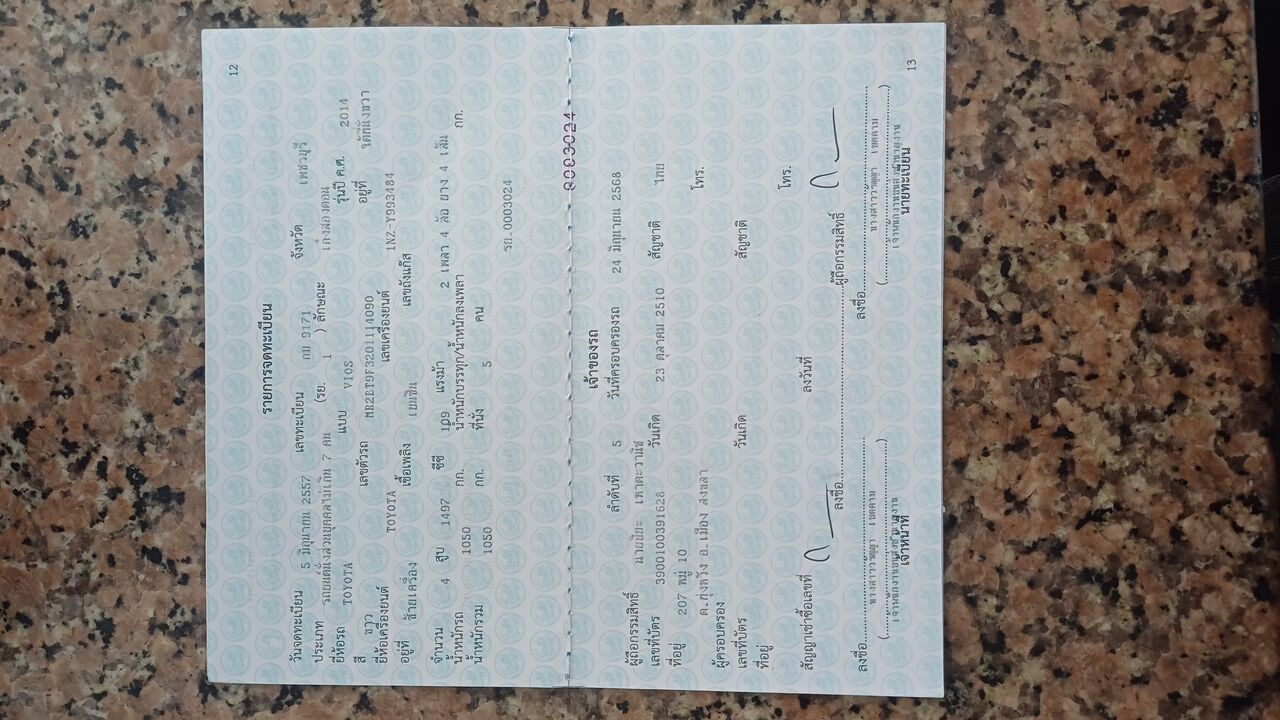 12
รายการจดทะเบียน
วันจดทะเบียน 5 มิถุนายน 2557 เลขทะเบียน กม 9171 จังหวัด เพชรบุรี
ประเภท รถยนต์นั่งส่วนบุคคลไม่เกิน 7 คน (รย. 1 ) ลักษณะ เก๋งสองตอน
ยี่ห้อรถ TOYOTA แบบ VIOS รุ่นปี ค.ศ. 2014
สี ขาว เลขตัวรถ MR2BT9F3201114090 อยู่ที่ ใต้ที่นั่งขวา
ยี่ห้อเครื่องยนต์ TOYOTA เลขเครื่องยนต์ 1NZ-Y993484
อยู่ที่ ซ้ายเครื่อง เชื้อเพลิง เบนซิน เลขถังแก๊ส
จำนวน 4 สูบ 1497 ซีซี 109 แรงม้า 2 เพลา 4 ล้อ ยาง 4 เส้น
น้ำหนักรถ 1050 กก. น้ำหนักบรรทุก/น้ำหนักลงเพลา กก.
น้ำหนักรวม 1050 กก. ที่นั่ง 5 คน
รย.0003024
8003024
เจ้าของรถ
ลำดับที่ 5 วันที่ครอบครองรถ 24 มิถุนายน 2568
ผู้ถือกรรมสิทธิ์ นายปิยะ เหาตะวานิช
เลขที่บัตร 3900100391628 วันเกิด 23 ตุลาคม 2510 สัญชาติ ไทย
ที่อยู่ 207 หมู่ 10 โทร.
ต.ทุ่งหวัง อ.เมือง สงขลา
ผู้ครอบครอง
เลขที่บัตร วันเกิด สัญชาติ
ที่อยู่ โทร.
สัญญาเช่าซื้อเลขที่ ลงวันที่
ลงชื่อ ผู้ถือกรรมสิทธิ์
ลงชื่อ ลงชื่อ
เจ้าหน้าที่ นายทะเบียน
13